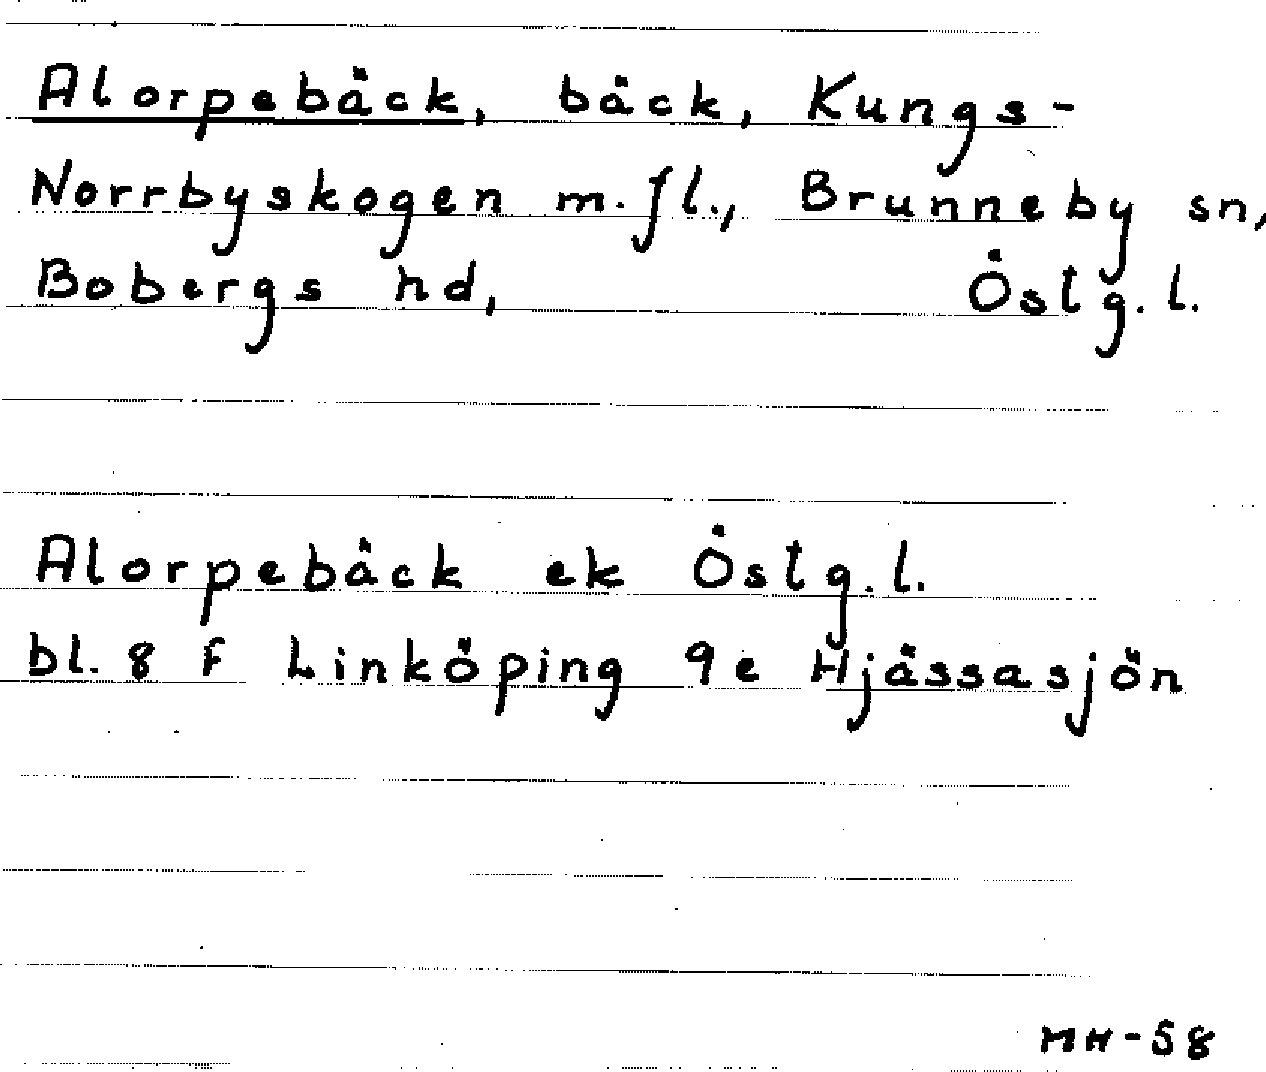 Alorpebäck, bäck, Kungs-
Norrbyskogen m.fl., Brunneby sn,
Bobergs hd, Östg.l.
Alorpebäck ek Östg.l.
bl. 8 F Linköping 9e Hjässasjön
MH-58